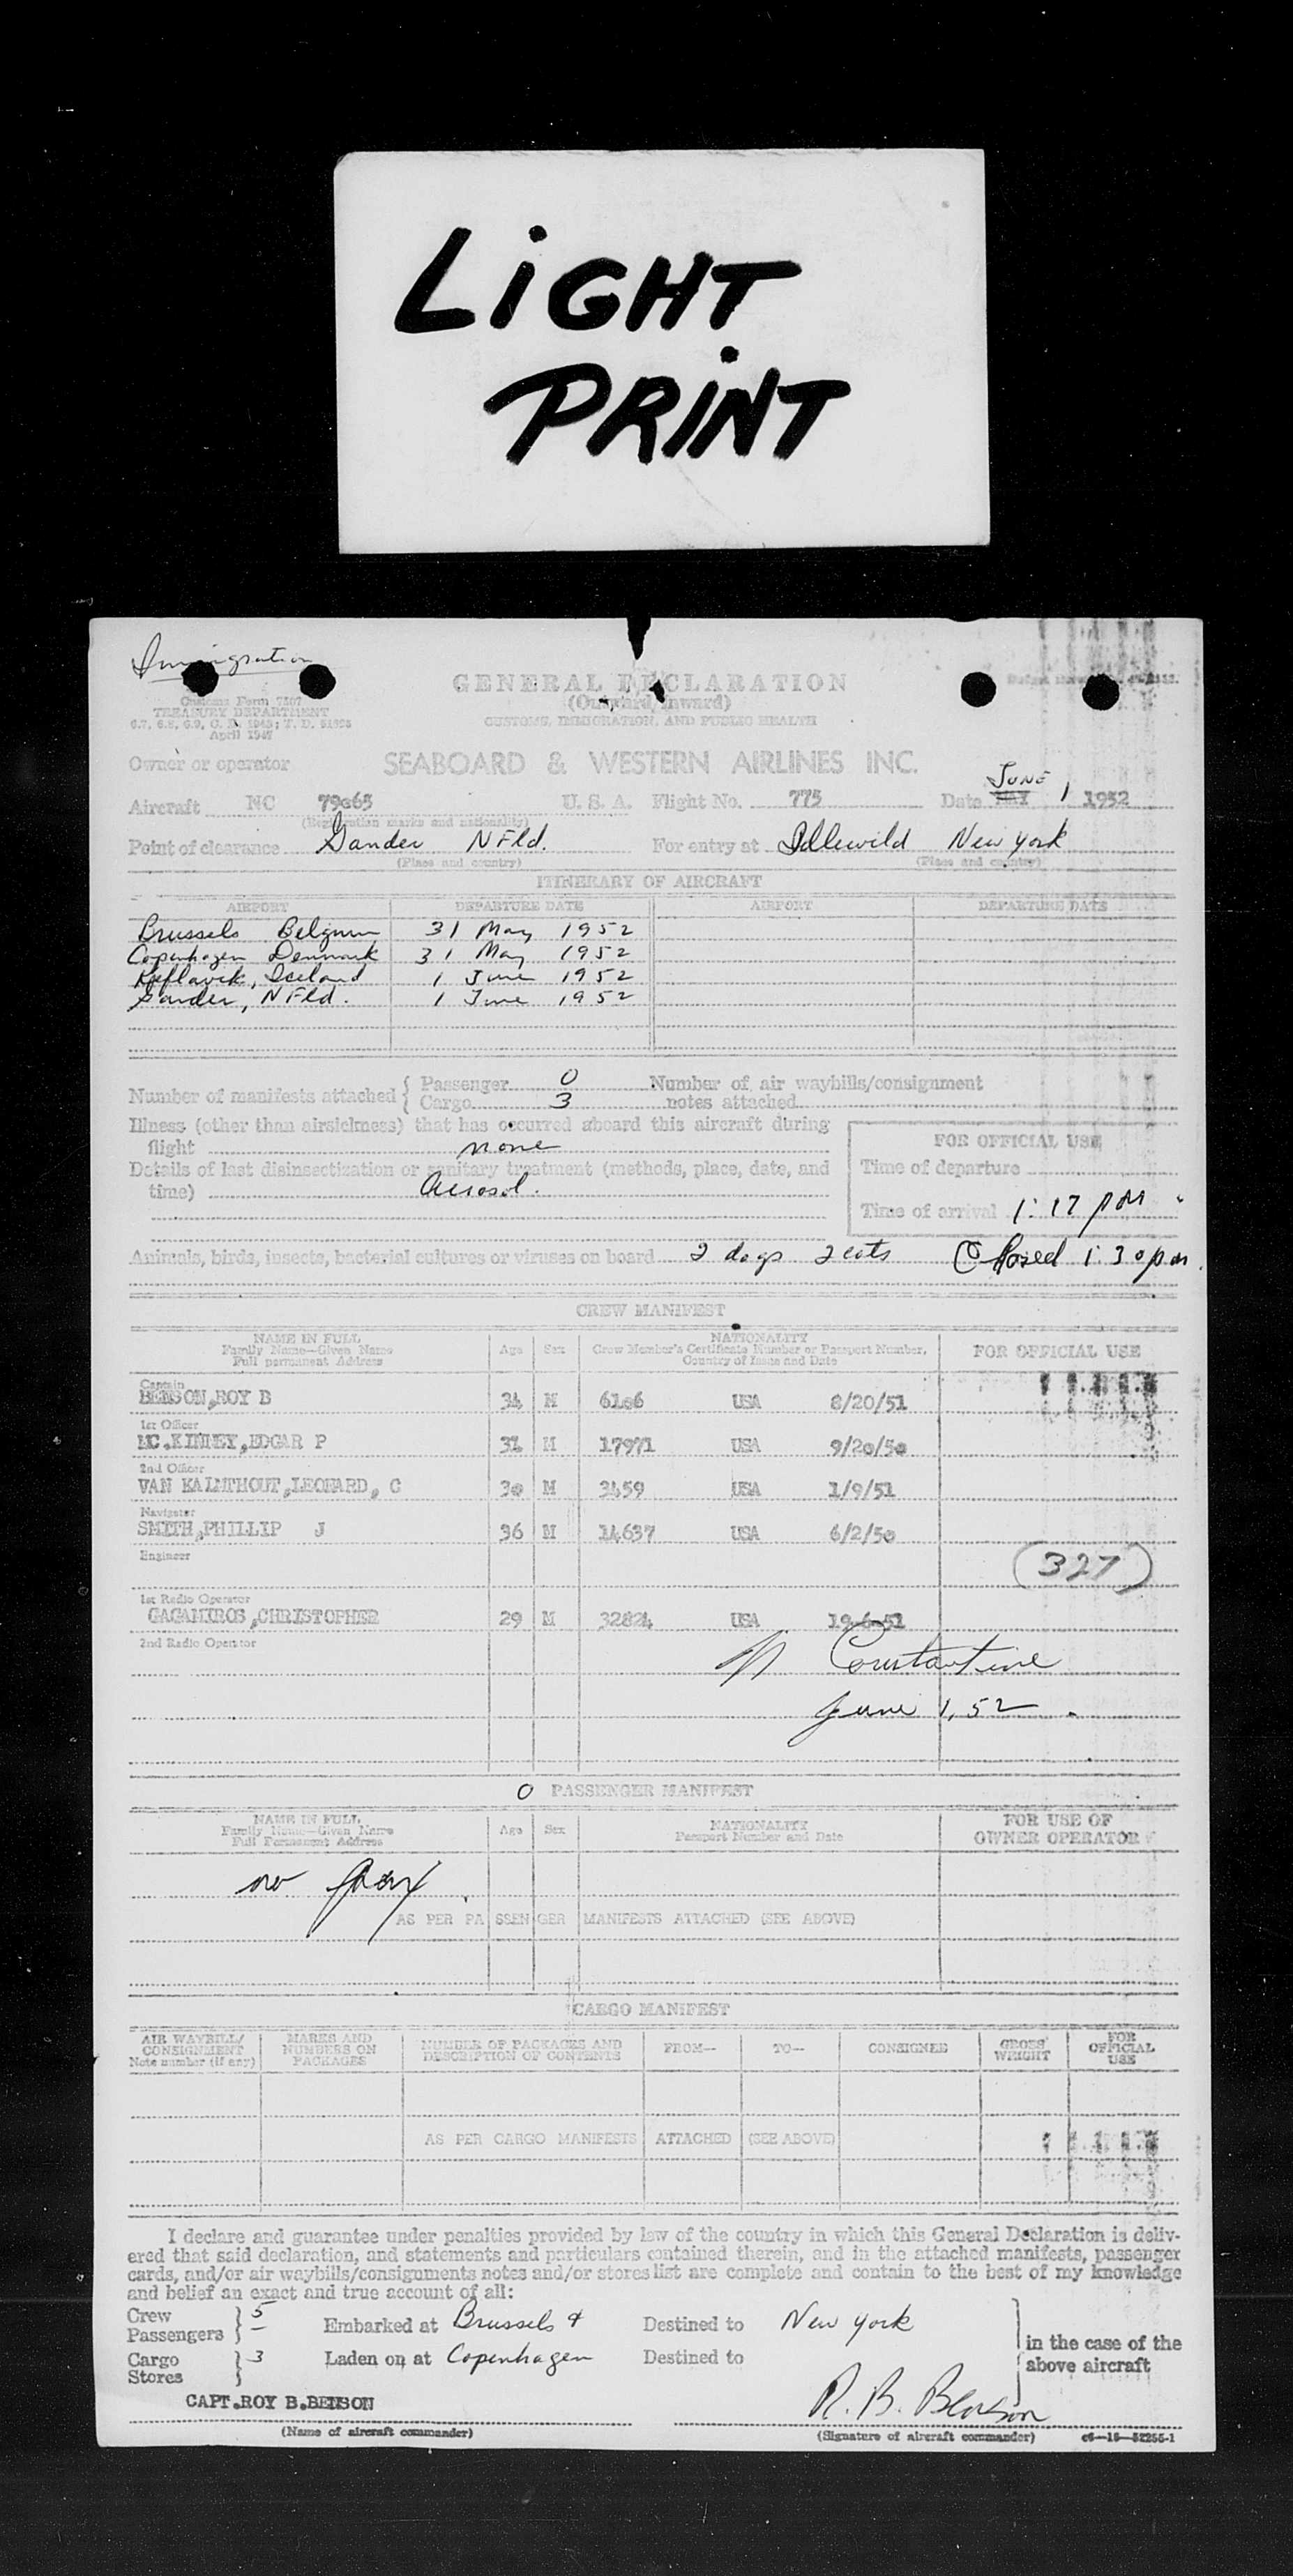 LiGHT
PRiNT
Immigration
GENERAL DECLARATION
(Outward/Inward)
CUSTOMS, IMMIGRATION, AND PUBLIC HEALTH
Customs Form 7507
TREASURY DEPARTMENT
April 1947
Owner or operator SEABOARD & WESTERN AIRLINES INC.
Aircraft NC 79065 U. S. A. Flight No. 775 Date MAY JUNE 1 1952
(Registration marks and nationality)
Point of clearance Gander NFld. For entry at Idlewild New York
(Place and country) (Place and country)
ITINERARY OF AIRCRAFT
AIRPORT DEPARTURE DATE AIRPORT DEPARTURE DATE
Brussels Belgium 31 May 1952
Copenhagen Denmark 31 May 1952
Keflavik, Iceland 1 June 1952
Gander, NFld. 1 June 1952
Number of manifests attached { Passenger 0 Number of air waybills/consignment
Cargo 3 notes attached
Illness (other than airsickness) that has occurred aboard this aircraft during
flight none
FOR OFFICIAL USE
Details of last disinsectization or sanitary treatment (methods, place, date, and
time) Aerosol.
Time of departure
Time of arrival 1:17 pm
Animals, birds, insects, bacterial cultures or viruses on board 2 dogs 2 cats Closed 1:30 pm.
CREW MANIFEST
NAME IN FULL
Family Name—Given Name
Full permanent Address
Age Sex
NATIONALITY
Crew Member's Certificate Number or Passport Number,
Country of Issue and Date
FOR OFFICIAL USE
Captain
BENSON,ROY B 34 M 6106 USA 8/20/51
1st Officer
MC.KINNEY,EDGAR P M 17971 USA 9/20/50
2nd Officer
VAN KALMTHOUT,LEONARD, C 30 M 3459 USA 1/9/51
Navigator
SMITH,PHILLIP J 36 M 14637 USA 6/2/50
Engineer
(327)
1st Radio Operator
GAGAMIROS,CHRISTOPHER 29 M 32824 USA 19-6-51
2nd Radio Operator
N Constantine
June 1, 52
0 PASSENGER MANIFEST
NAME IN FULL
Family Name—Given Name
Full Permanent Address
Age Sex
NATIONALITY
Passport Number and Date
FOR USE OF
OWNER OPERATOR
no pax
AS PER PASSENGER MANIFESTS ATTACHED (SEE ABOVE)
CARGO MANIFEST
AIR WAYBILL/
CONSIGNMENT
Note number (if any)
MARKS AND
NUMBERS ON
PACKAGES
NUMBER OF PACKAGES AND
DESCRIPTION OF CONTENTS
FROM—
TO—
CONSIGNEE
GROSS
WEIGHT
FOR
OFFICIAL
USE
AS PER CARGO MANIFESTS ATTACHED (SEE ABOVE)
I declare and guarantee under penalties provided by law of the country in which this General Declaration is deliv-
ered that said declaration, and statements and particulars contained therein, and in the attached manifests, passenger
cards, and/or air waybills/consignments notes and/or stores list are complete and contain to the best of my knowledge
and belief an exact and true account of all:
Crew } 5 Embarked at Brussels & Destined to New York
Passengers } —
in the case of the
above aircraft
Cargo } 3 Laden on at Copenhagen Destined to
Stores }
CAPT.ROY B.BENSON R. B. Benson
(Name of aircraft commander) (Signature of aircraft commander) c6—16—52255-1